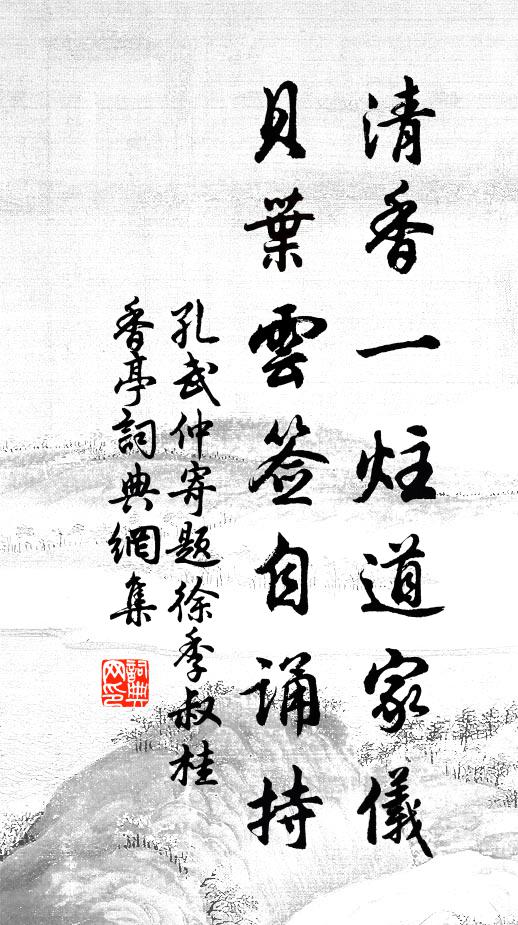 清香一炷道家儀
貝葉雲签自诵持
孔武仲寄题徐季叔桂
香亭詞典網集
詞典网印